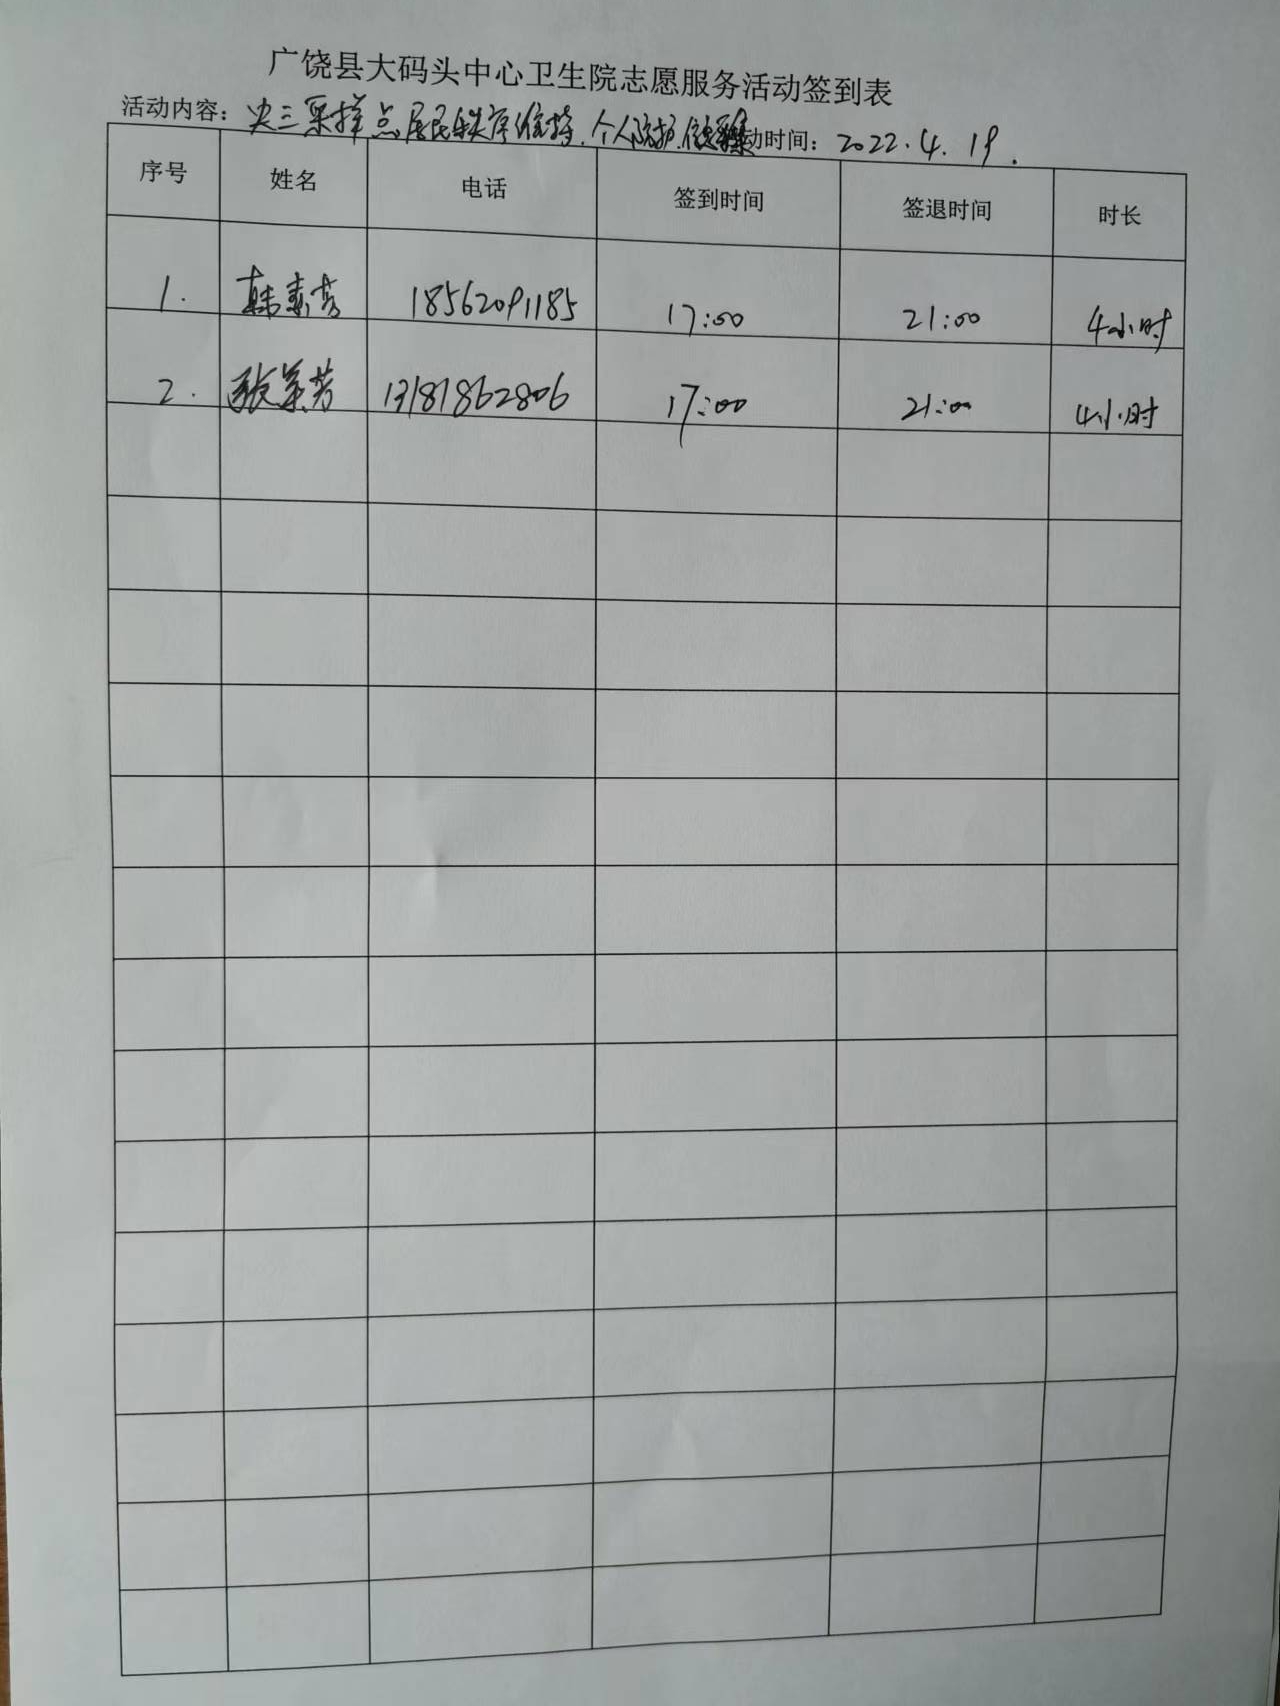 广饶县大码头中心卫生院志愿服务活动签到表
活动内容：央三采样点居民秩序维持、个人防护、信息 动时间：2022.4.19.
序号 姓名 电话 签到时间 签退时间 时长
1. 韩素芳 18562091185 17:00 21:00 4小时
2. 张美芳 13181862806 17:00 21:00 4小时